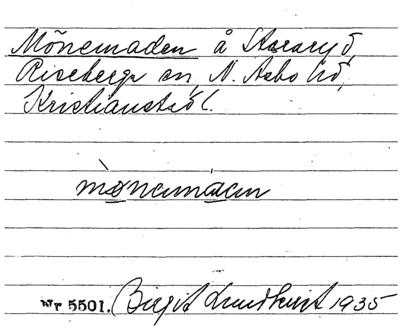 Mönemaden å Stararyd,
Riseberga sn, N. Åsbo hd,
Kristianstads l.
mònemàen
Nr 5501. Birgit Lundkvist 1935